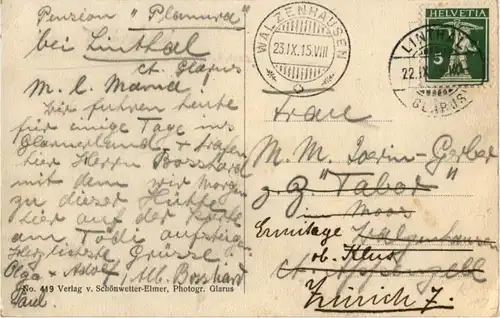 Pension "Planura"
bei Linthal
ct. Glarus
M. l. Mama!
Wir fuhren heute
für einige Tage ins
Glarnerland, & trafen
hier Herrn Bosshard
mit dem wir morgen
zu dieser Hütte
hier auf der Höhe
am Tödi aufsteigen
Herzlichste Grüsse!
Olga & Adolf
Alb. Bosshard
Paul
No. 419 Verlag v. Schönwetter-Elmer, Photogr. Glarus
WALZENHAUSEN
23.IX.15.VIII
HELVETIA
5
LINTHAL
22.IX.
GLARUS
Frau
M. M. Joerin-Gerber
z. Z. "Tabor"
im Moos
Ermitage Walzenhausen
ob. Klus
ct. Appenzell
Zürich 7.